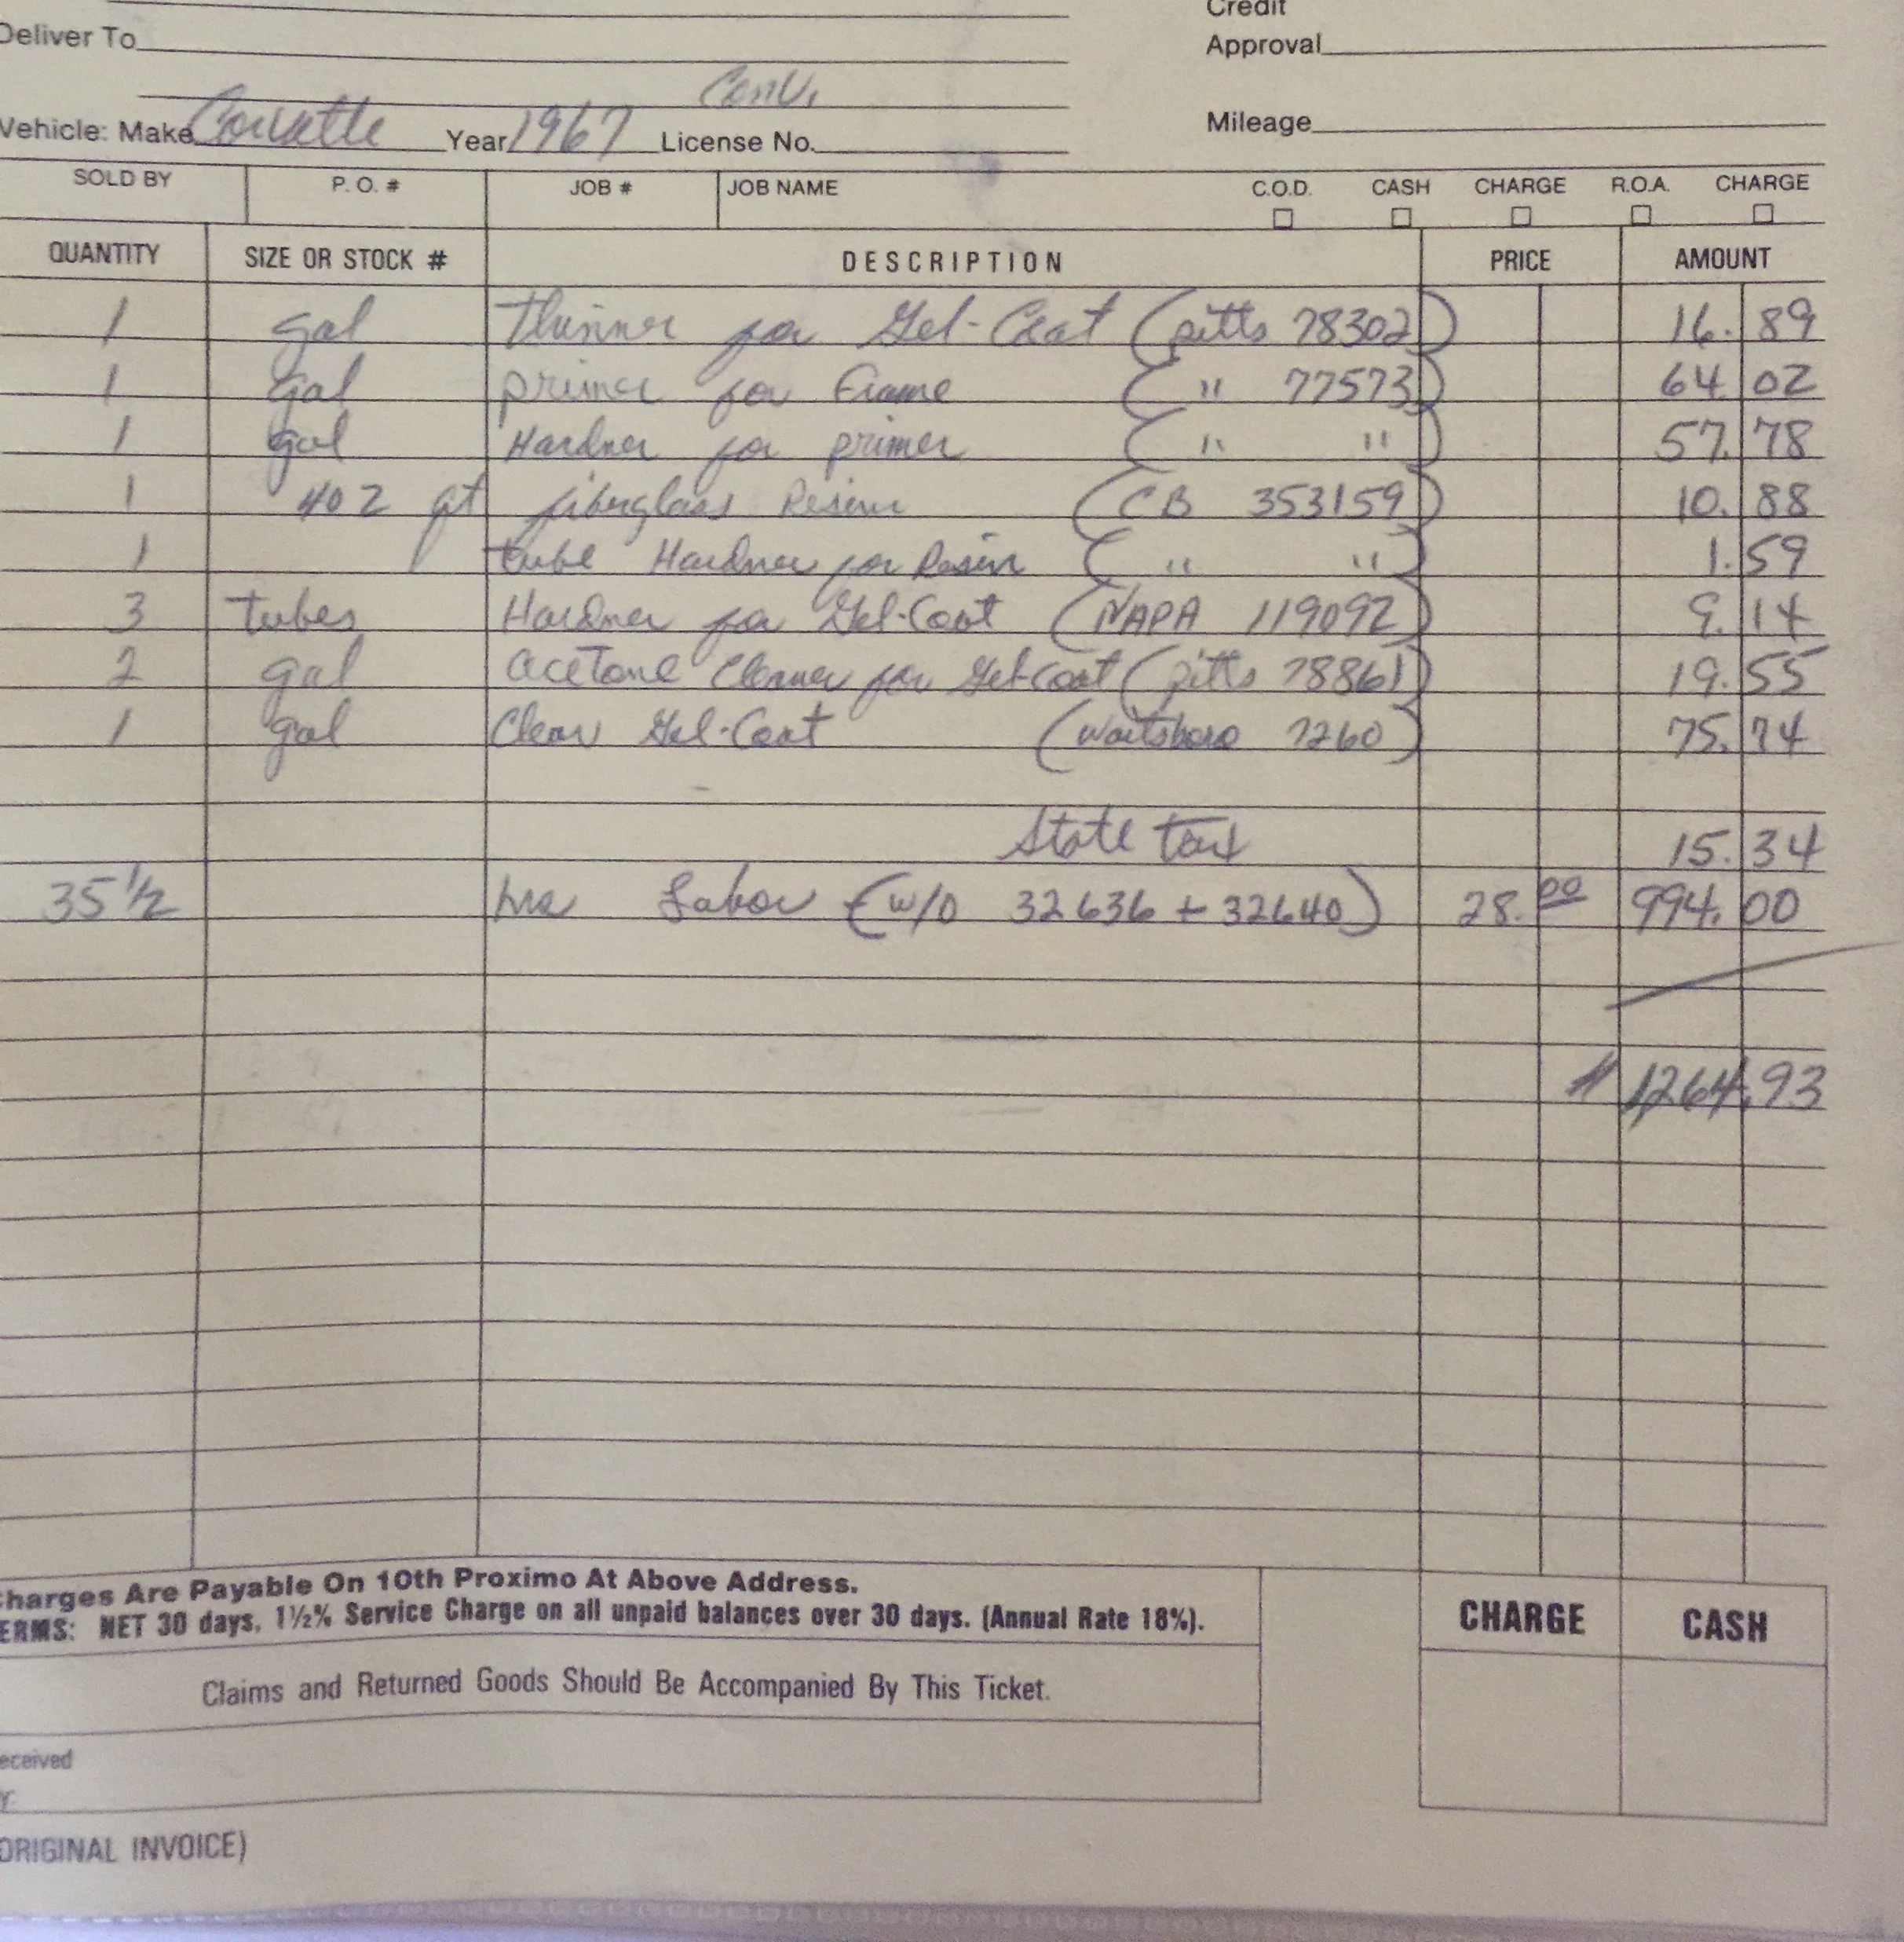 Credit
Deliver To
Approval
Conv.
Vehicle: Make Corvette Year 1967 License No.
Mileage
SOLD BY P. O. # JOB # JOB NAME C.O.D. CASH CHARGE R.O.A. CHARGE
QUANTITY SIZE OR STOCK # DESCRIPTION PRICE AMOUNT
1 gal Thinner for Gel-Coat (pitts 78302) 16.89
1 gal primer for Frame ( " 77573) 64.02
1 gal Hardner for primer ( " " ) 57.78
1 402 qt fiberglass Resin (CB 353159) 10.88
1 tube Hardner for Resin ( " " ) 1.59
3 tubes Hardner for Gel-Coat (NAPA 119092) 9.14
2 gal acetone Cleaner for Gel-coat (pitts 78861) 19.55
1 gal Clear Gel-Coat (Waitsboro 7260) 75.74
State tax 15.34
35 1/2 hrs Labor (w/o 32636 + 32640) 28.00 994.00
$ 1264.93
Charges Are Payable On 10th Proximo At Above Address.
ERMS: NET 30 days, 1½% Service Charge on all unpaid balances over 30 days. (Annual Rate 18%).
CHARGE CASH
Claims and Returned Goods Should Be Accompanied By This Ticket.
eceived
y
ORIGINAL INVOICE)